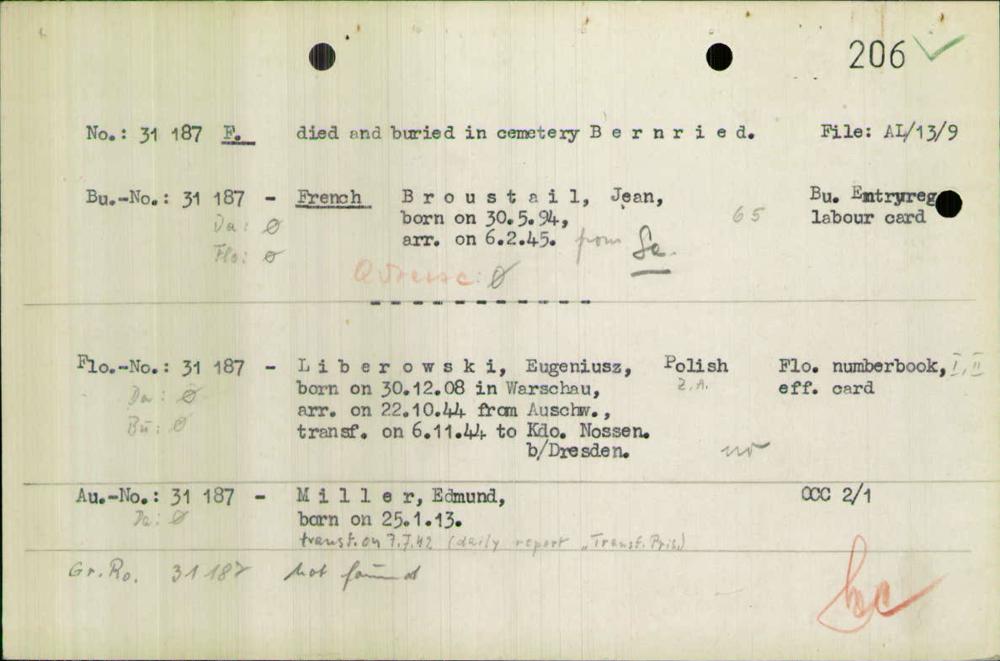 206
No.: 31 187 F. died and buried in cemetery B e r n r i e d. File: AL/13/9
Bu.-No.: 31 187 - French B r o u s t a i l, Jean, Bu. Entryreg
Da: ø born on 30.5.94, 65 labour card
Flo: ø arr. on 6.2.45. from Sa.
ø
Flo.-No.: 31 187 - L i b e r o w s k i, Eugeniusz, Polish Flo. numberbook, I, II
Da: ø born on 30.12.08 in Warschau, Z.A. eff. card
Bu: ø arr. on 22.10.44 from Auschw.,
transf. on 6.11.44 to Kdo. Nossen.
b/Dresden.
Au.-No.: 31 187 - M i l l e r, Edmund, OCC 2/1
Da: ø born on 25.1.13.
transf. on 7.7.42 (daily report "Transf. Pris.)
Gr. Ro. 31 187 not found